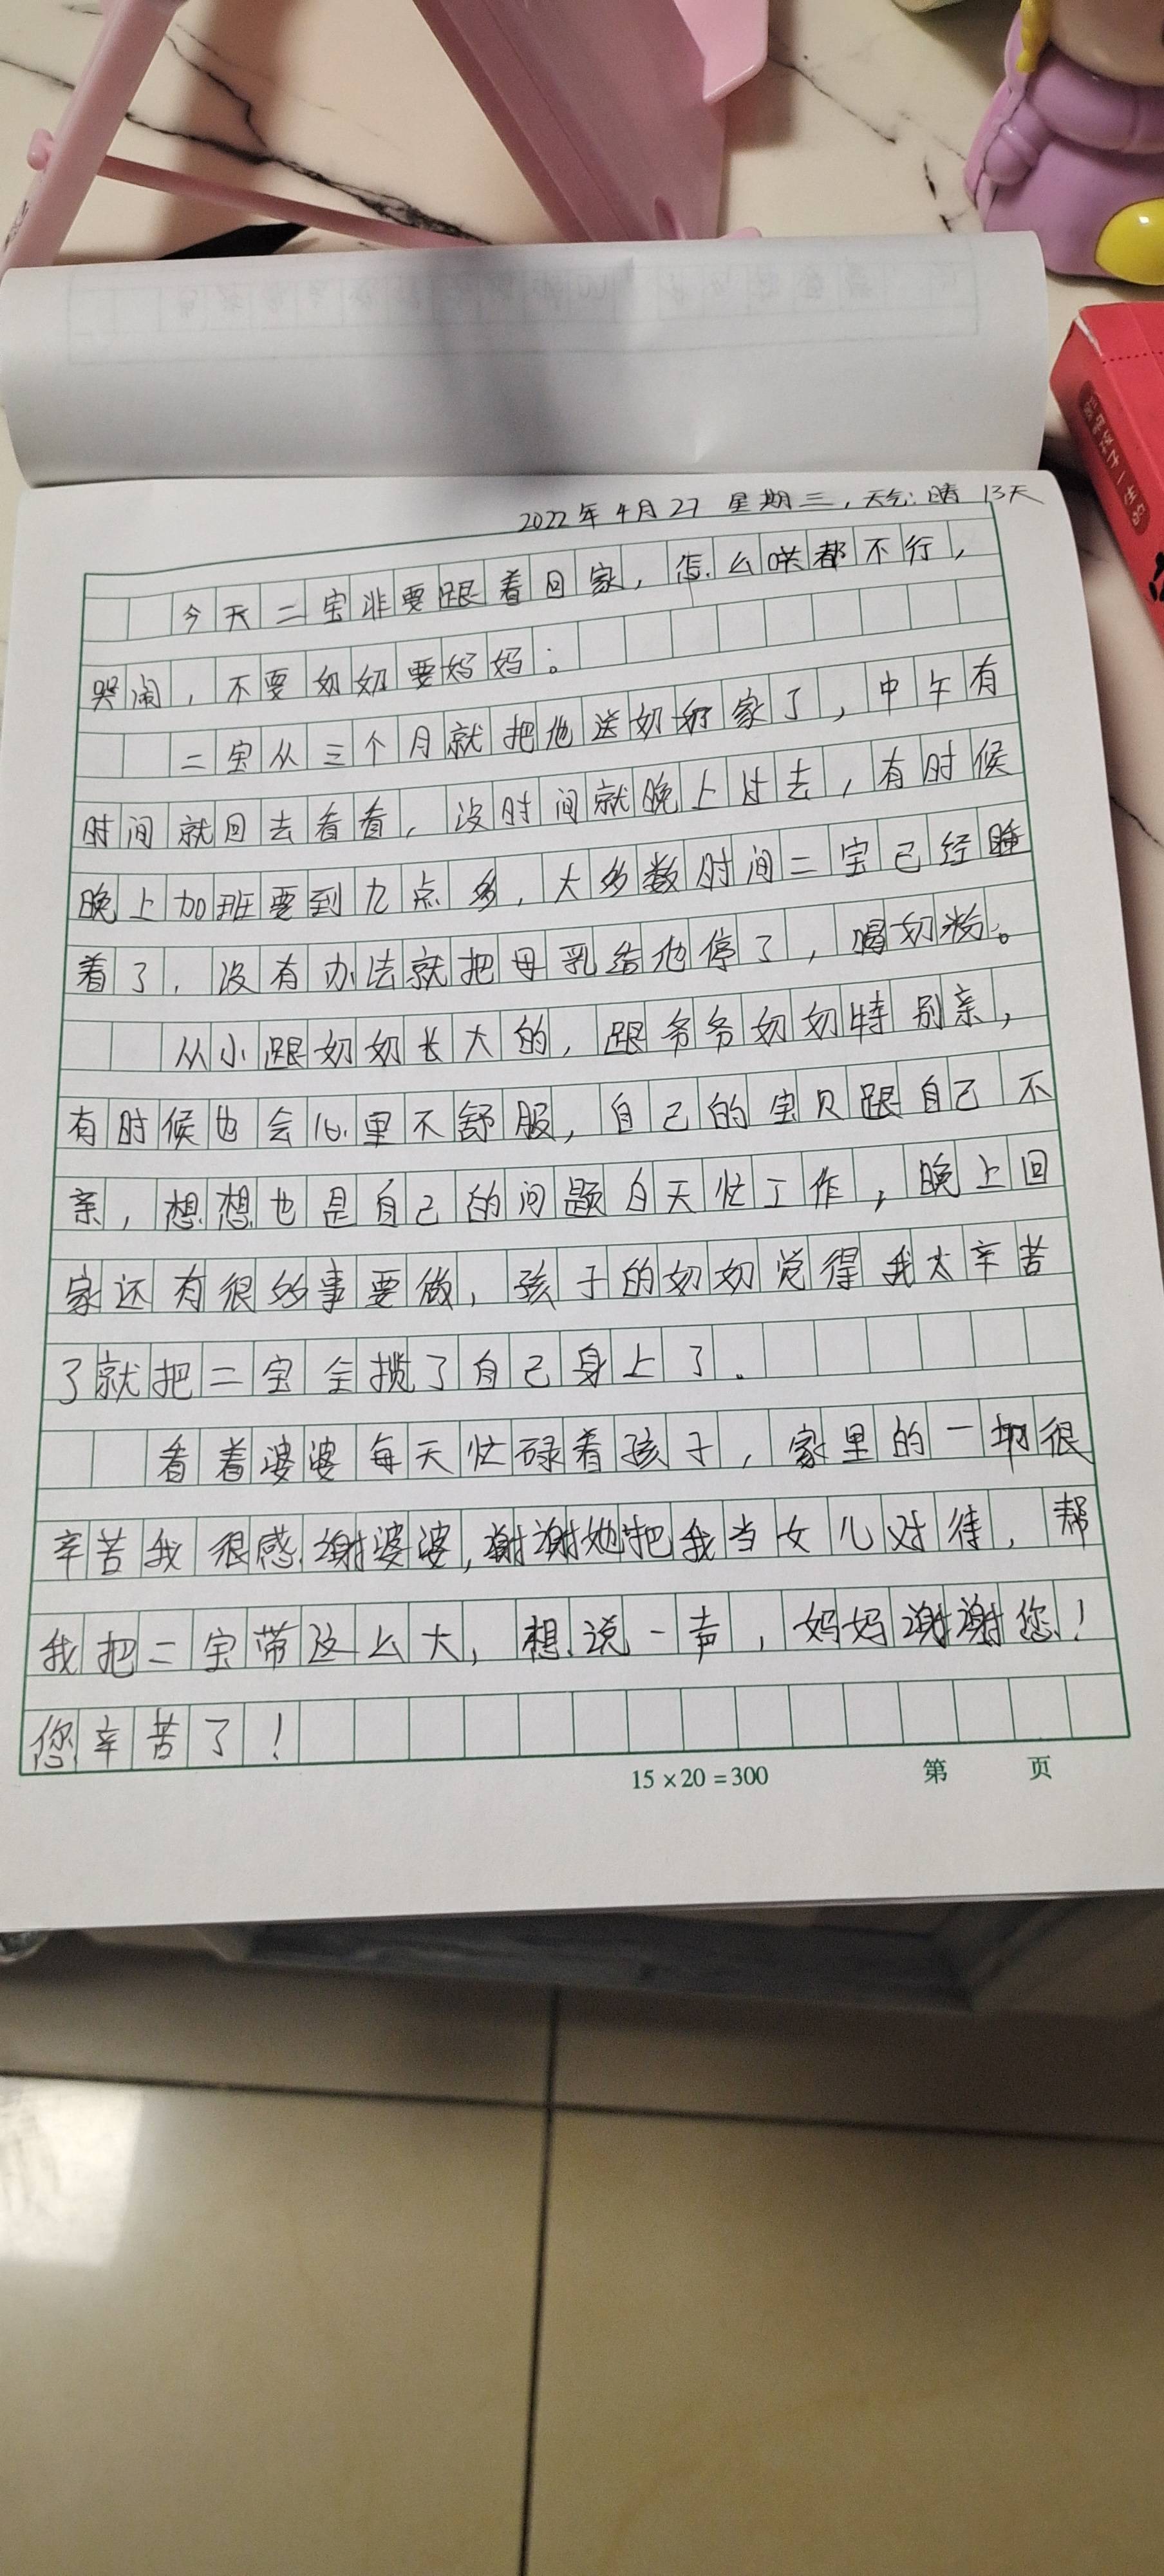 2022年4月27 星期三，天气：晴 13天
今天二宝非要跟着回家，怎么哄都不行，
哭闹，不要奶奶要妈妈。
二宝从三个月就把他送奶奶家了，中午有
时间就回去看看，没时间就晚上过去，有时候
晚上加班要到九点多，大多数时间二宝已经睡
着了，没有办法就把母乳给他停了，喝奶粉。
从小跟奶奶长大的，跟爷爷奶奶特别亲，
有时候也会心里不舒服，自己的宝贝跟自己不
亲，想想也是自己的问题白天忙工作，晚上回
家还有很多事要做，孩子的奶奶觉得我太辛苦
了就把二宝全揽了自己身上了.
看着婆婆每天忙碌着孩子，家里的一切很
辛苦我很感谢婆婆，谢谢她把我当女儿对待，帮
我把二宝带这么大，想说一声，妈妈谢谢您！
您辛苦了！
15×20=300 第 页